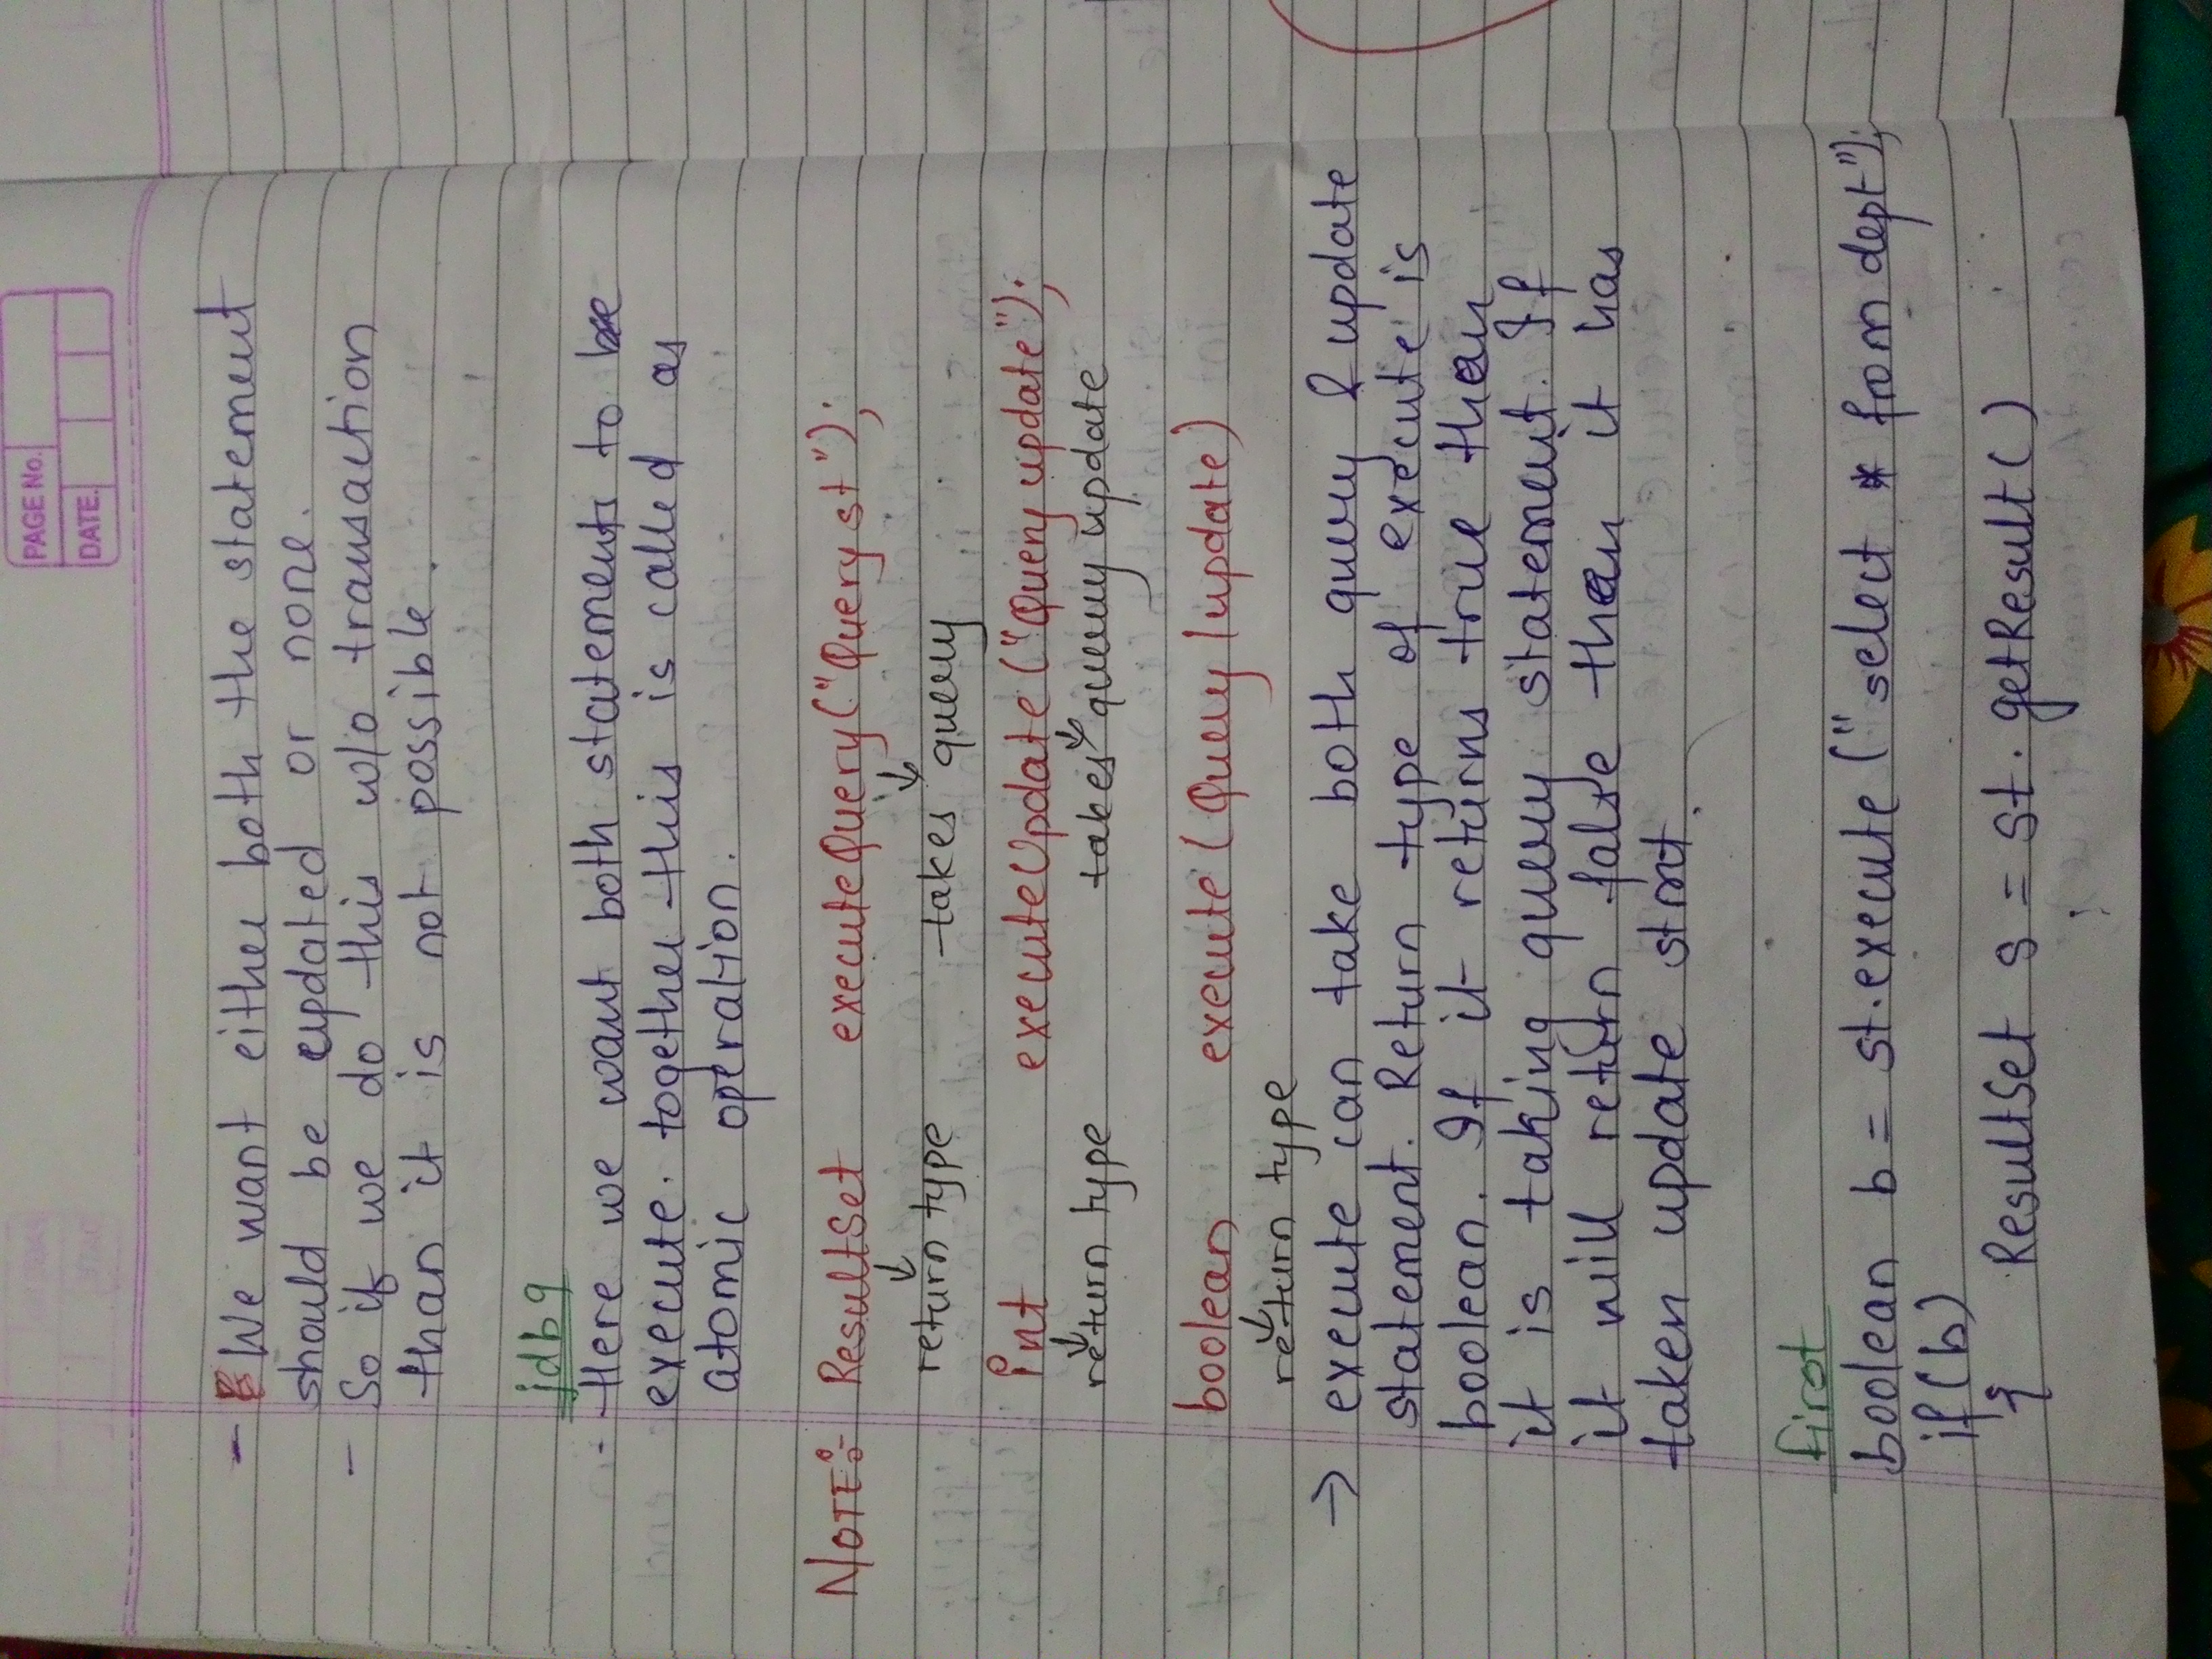 PAGE No.
DATE.
- We want either both the statement
should be updated or none.
- So if we do this w/o transaction
than it is not possible.
jdb9
- Here we want both statements to be
execute. together this is called as
atomic operation.
NOTE:- ResultSet executeQuery("Query st");
↓ ↓
return type takes query
int executeUpdate("Query update");
↓ ↓
return type takes query update
boolean execute(Query/update)
↓
return type
→ execute can take both query & update
statement. Return type of execute is
boolean. If it returns true then
it is taking query statement. If
it will return false then it has
taken update stmt.
first
boolean b = st.execute("select * from dept");
if(b)
{ ResultSet s = st.getResult()